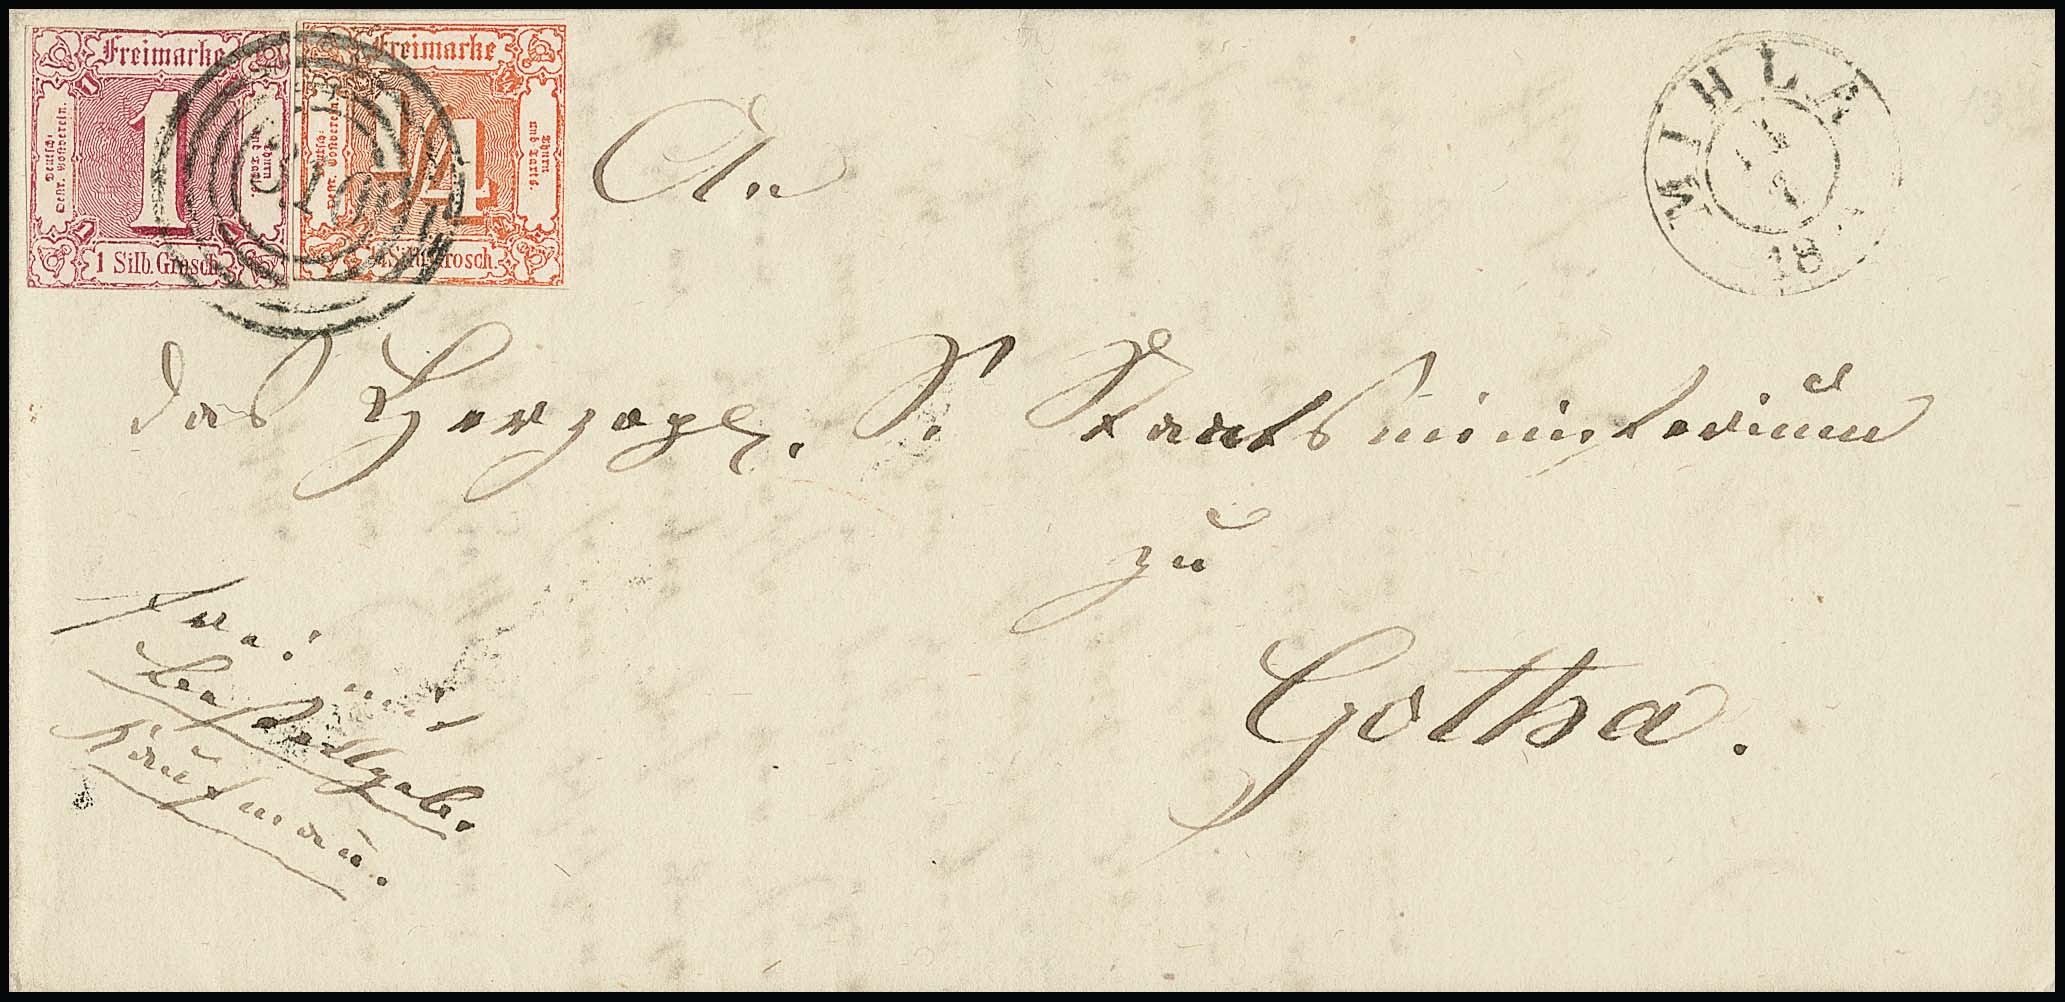 Freimarke
Deutsch: Oestr. Postverein.
1
Thurn und Taxis.
1 Silb. Grosch.
Freimarke
Deutsch: Oestr. Postverein.
1/4
Thurn und Taxis.
1/4 Silb. Grosch.
MIHLA
18
An
das Herzogl. S. Staatsministerium
zu
Gotha.
frei.
Bestellgeb.